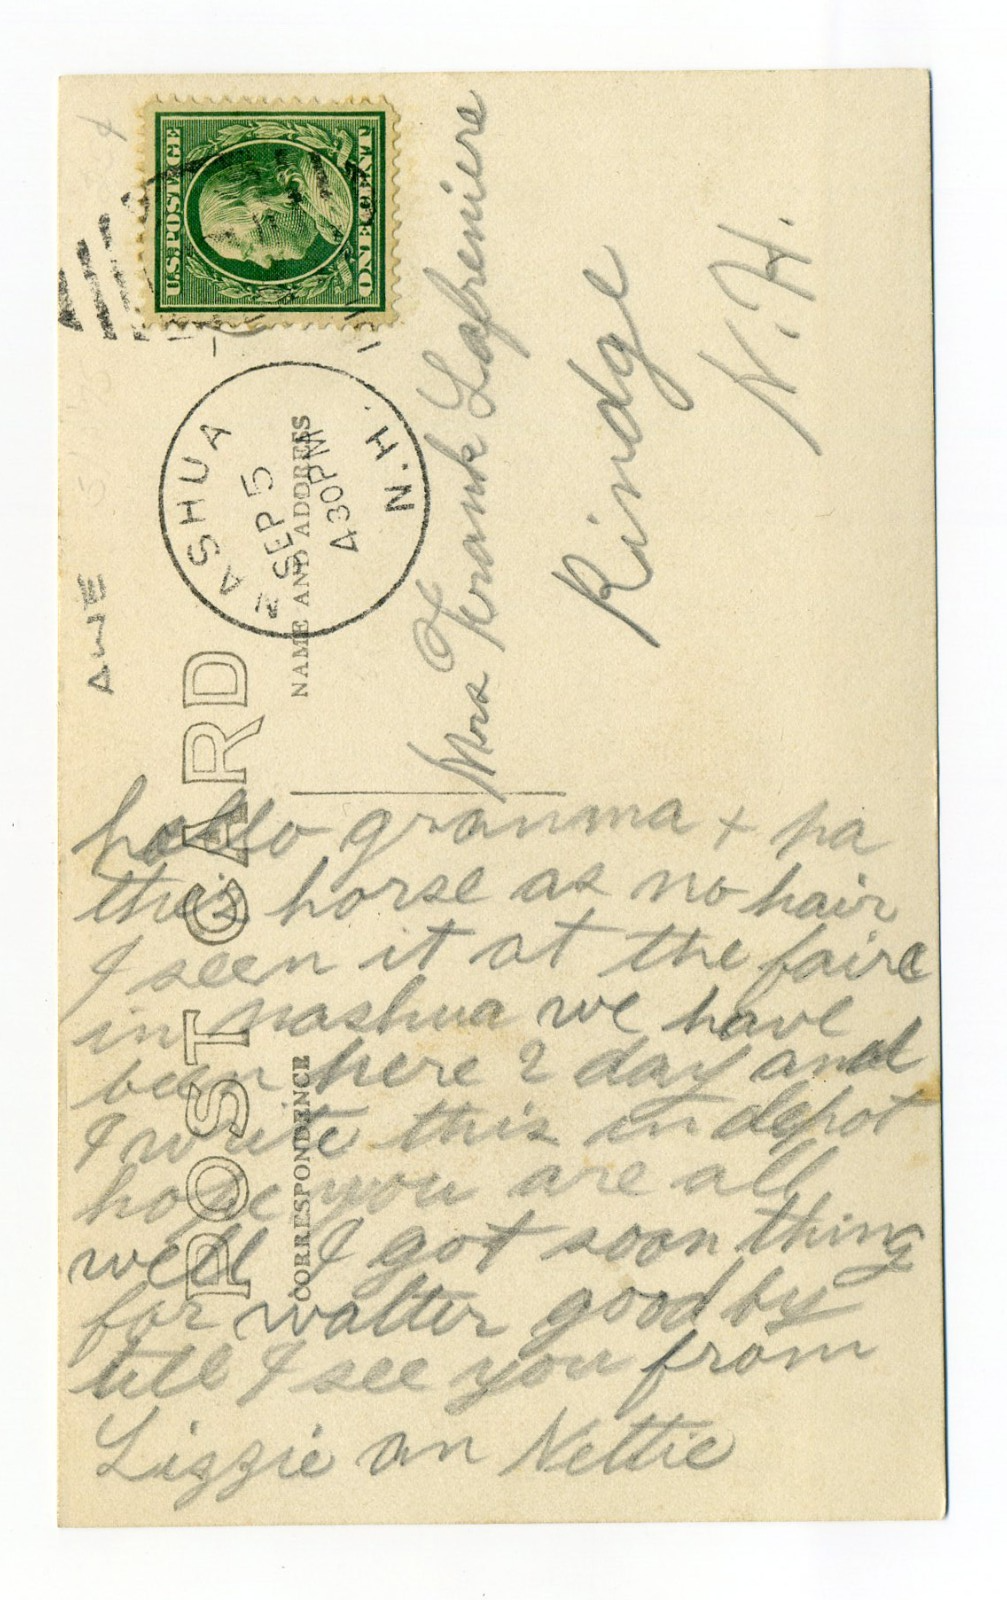 U.S. POSTAGE
ONE CENT
NASHUA
SEP 5
430 PM
N.H.
POST CARD
NAME AND ADDRESS
CORRESPONDENCE
Mrs Frank Lafreniere
Rindge
N.H.
hello granma + pa
this horse as no hair
I seen it at the faire
in nashua we have
been here 2 day and
I write this in depot
hope you are all
well I got soon thing
for walter good by
till I see you from
Lizzie an Nettie